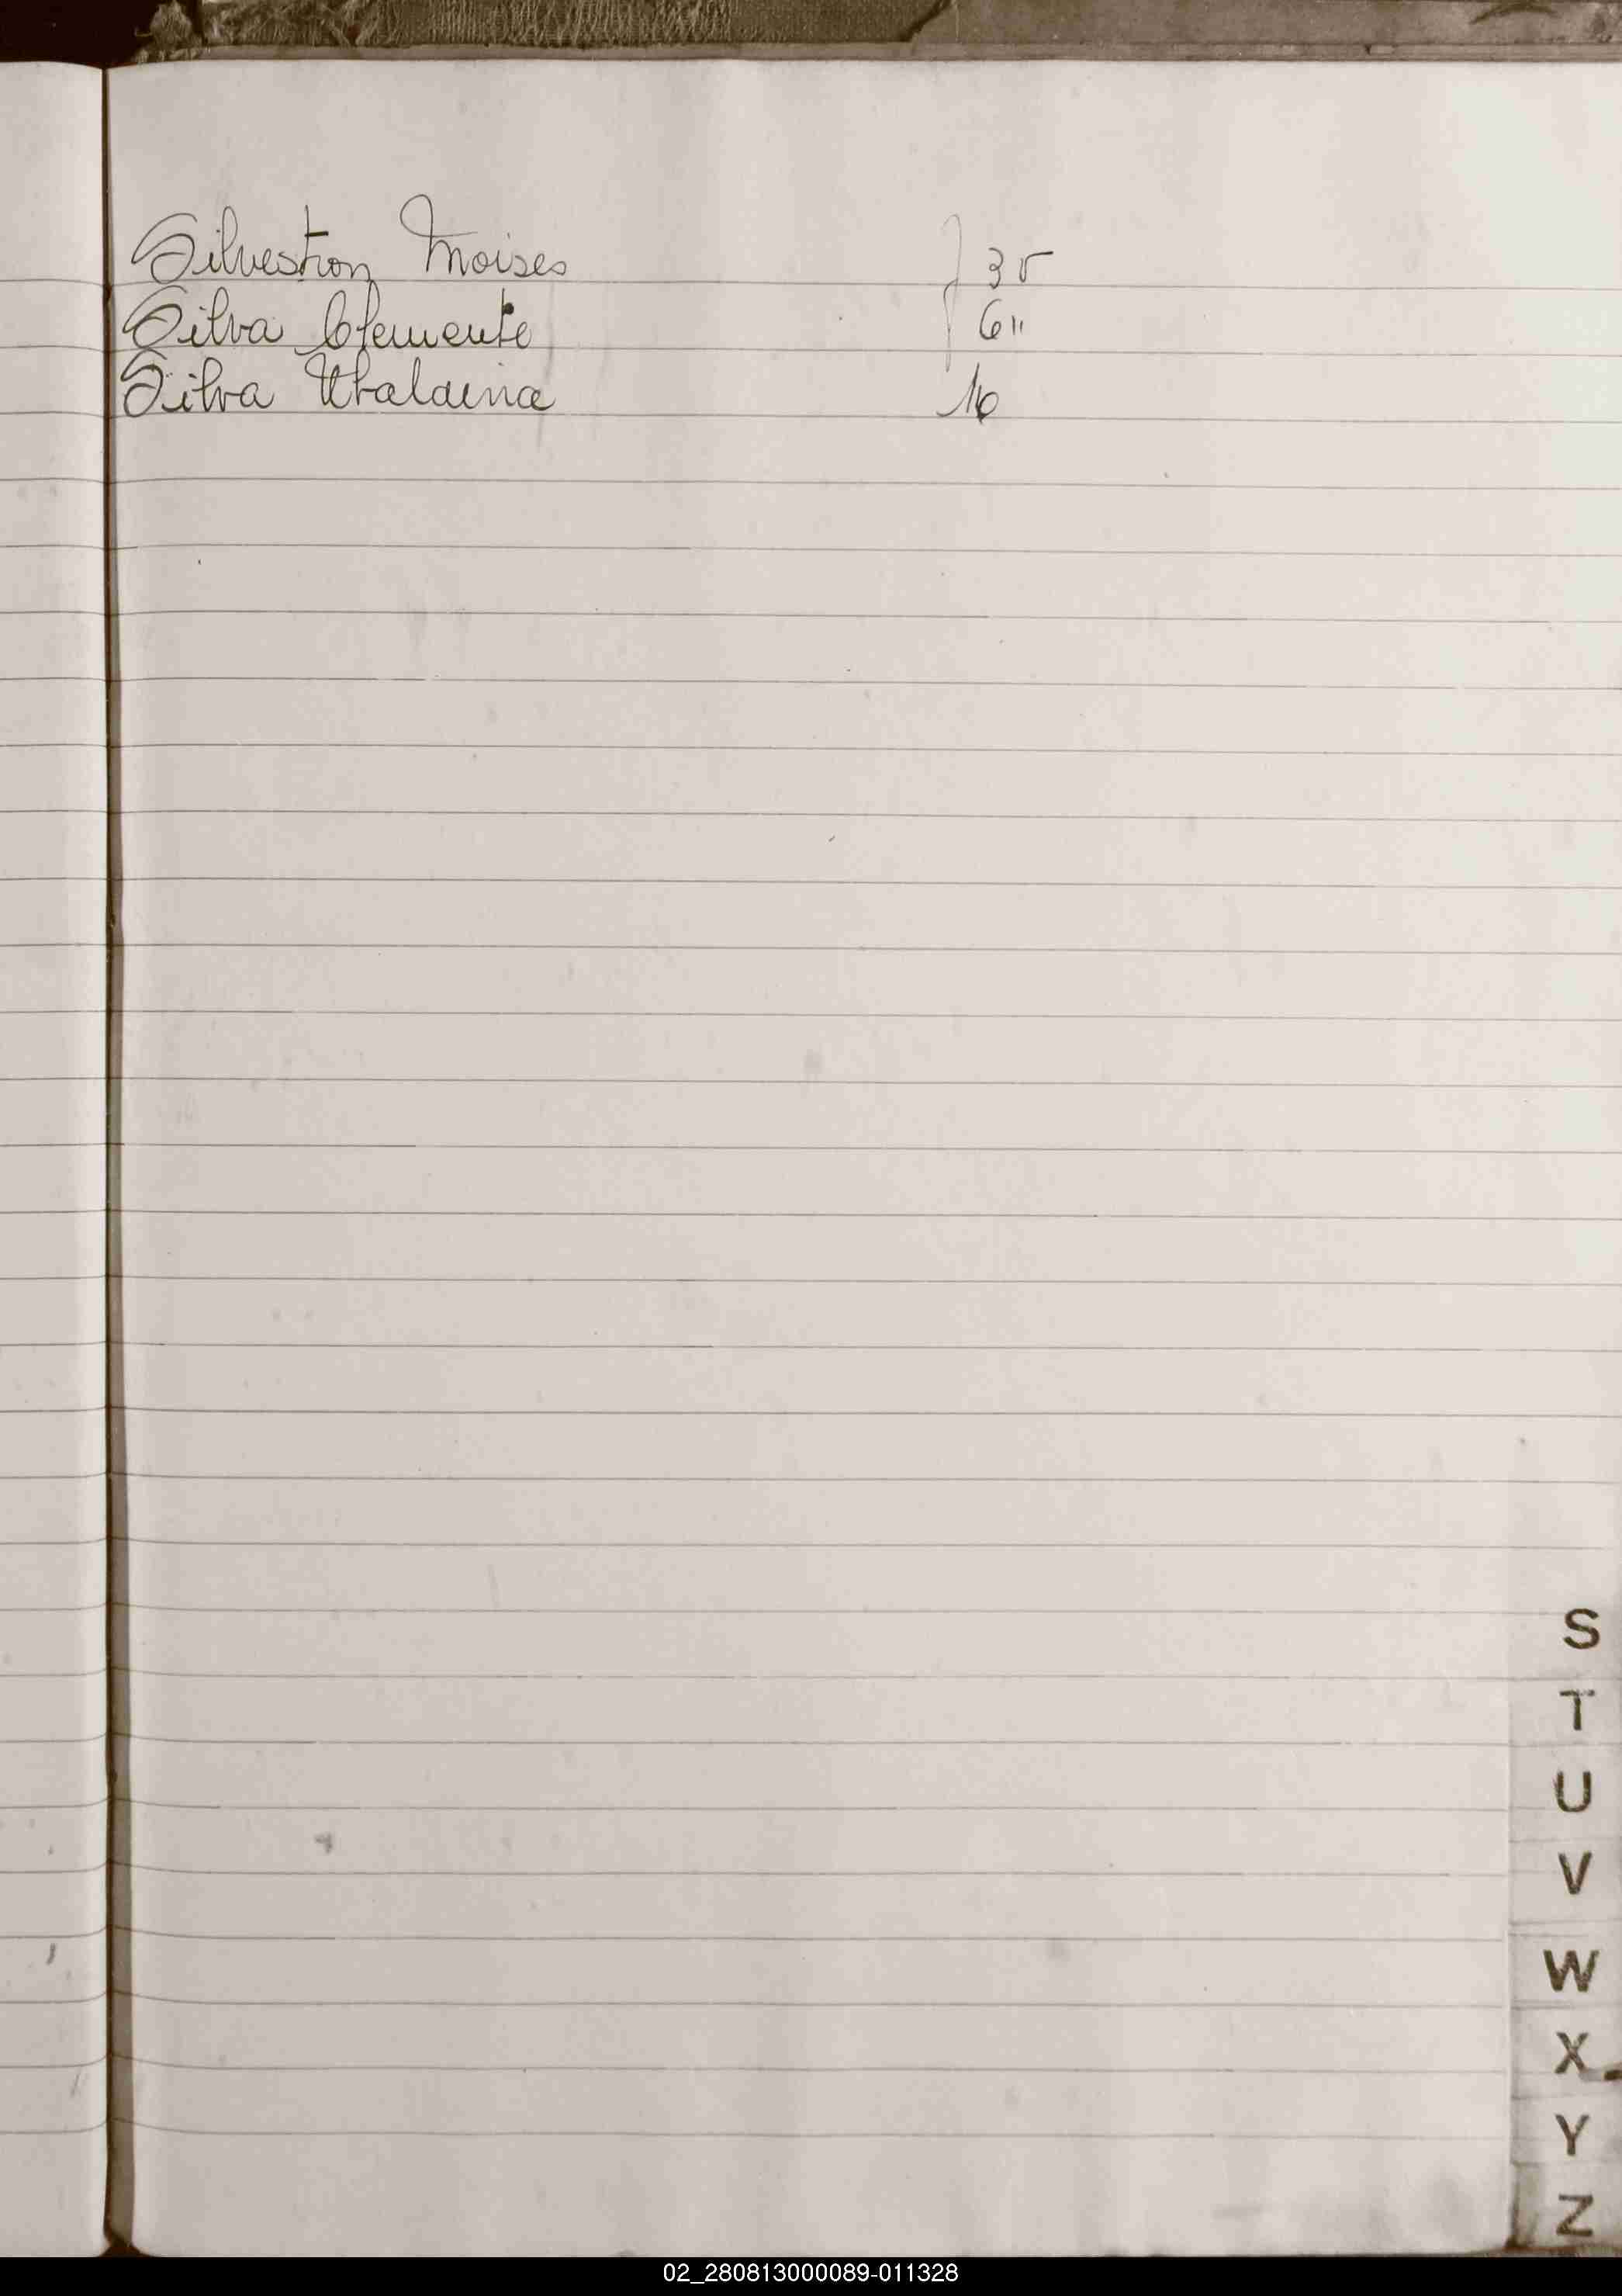 Silvestron Moises 35
Silva Clemente 6"
Silva Ubaldina 16
S
T
U
V
W
X
Y
Z
02_280813000089-011328